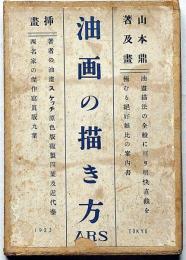 山本鼎
著及畫
油畫描法の全般に亘り明快直截を
極むる絶好無比の案内書
油画の描き方
ARS
挿畫
著者の油畫スケッチ原色版複製四葉及近代泰
西名家の傑作寫眞版九葉
1923
TOKYO